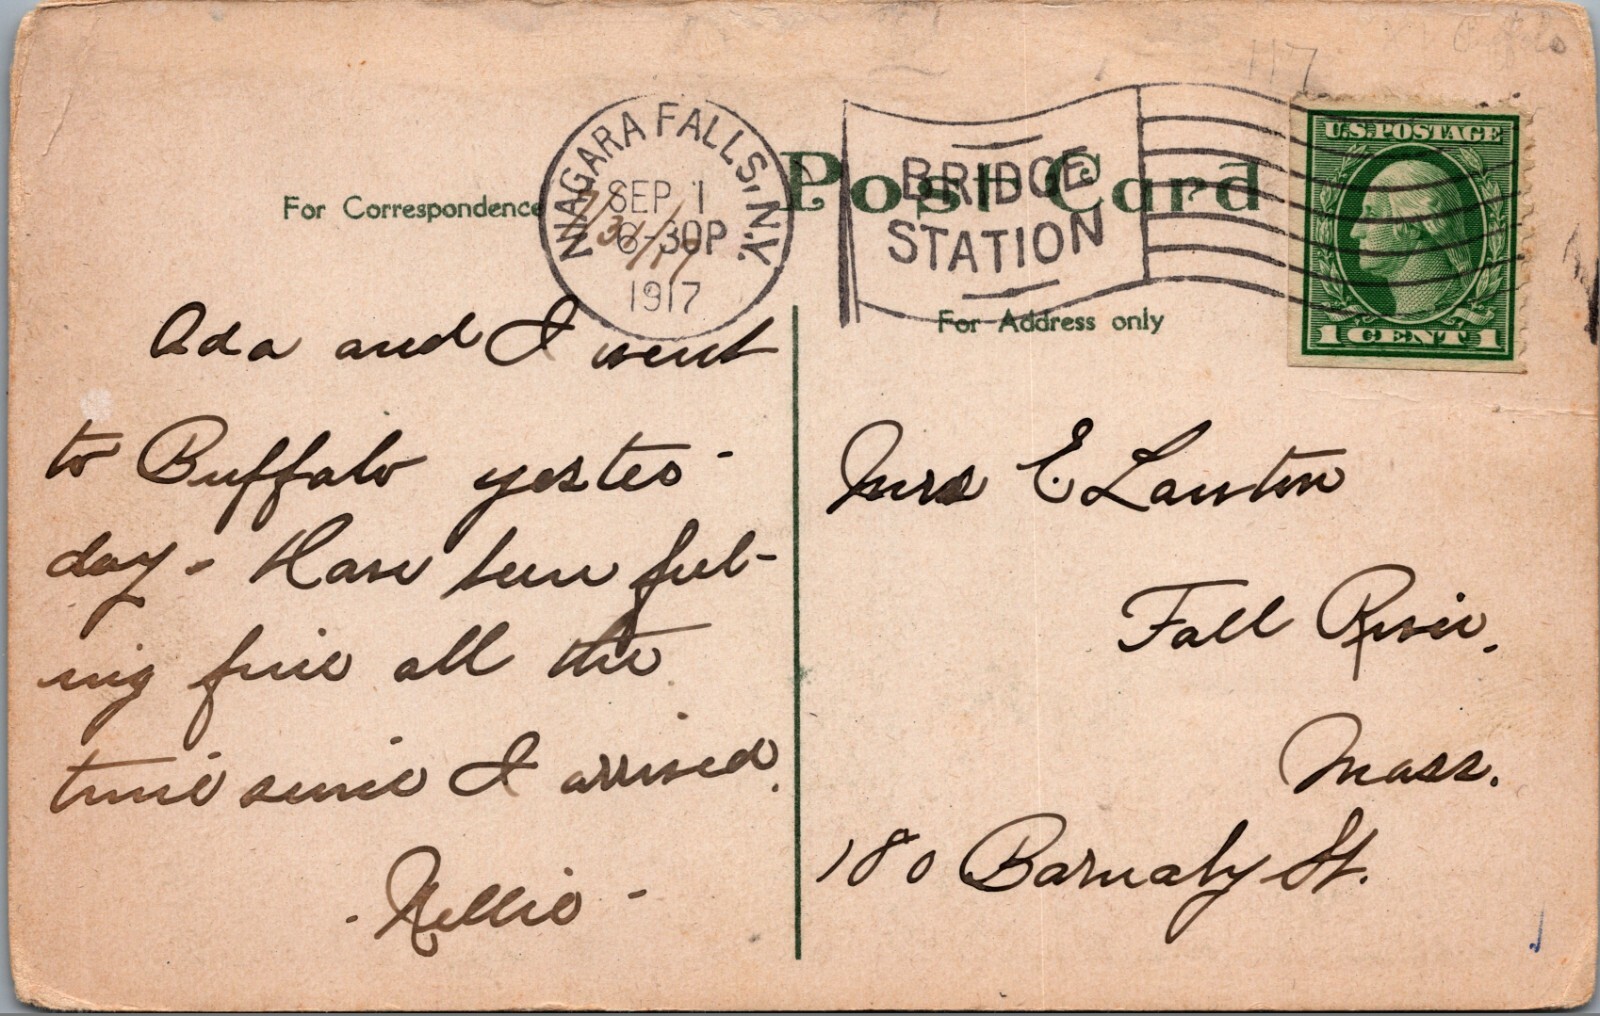 Post Card
For Correspondence
NIAGARA FALLS, N.Y.
SEP 1
6-30P
1917
BRIDGE
STATION
For Address only
U.S. POSTAGE
1 CENT 1
117
Buffalo
Ada and I went
to Buffalo yester-
day. Have been feel-
ing fine all the
time since I arrived.
- Nellie -
Mrs E. Lawton
Fall River.
Mass.
180 Barnaby St.